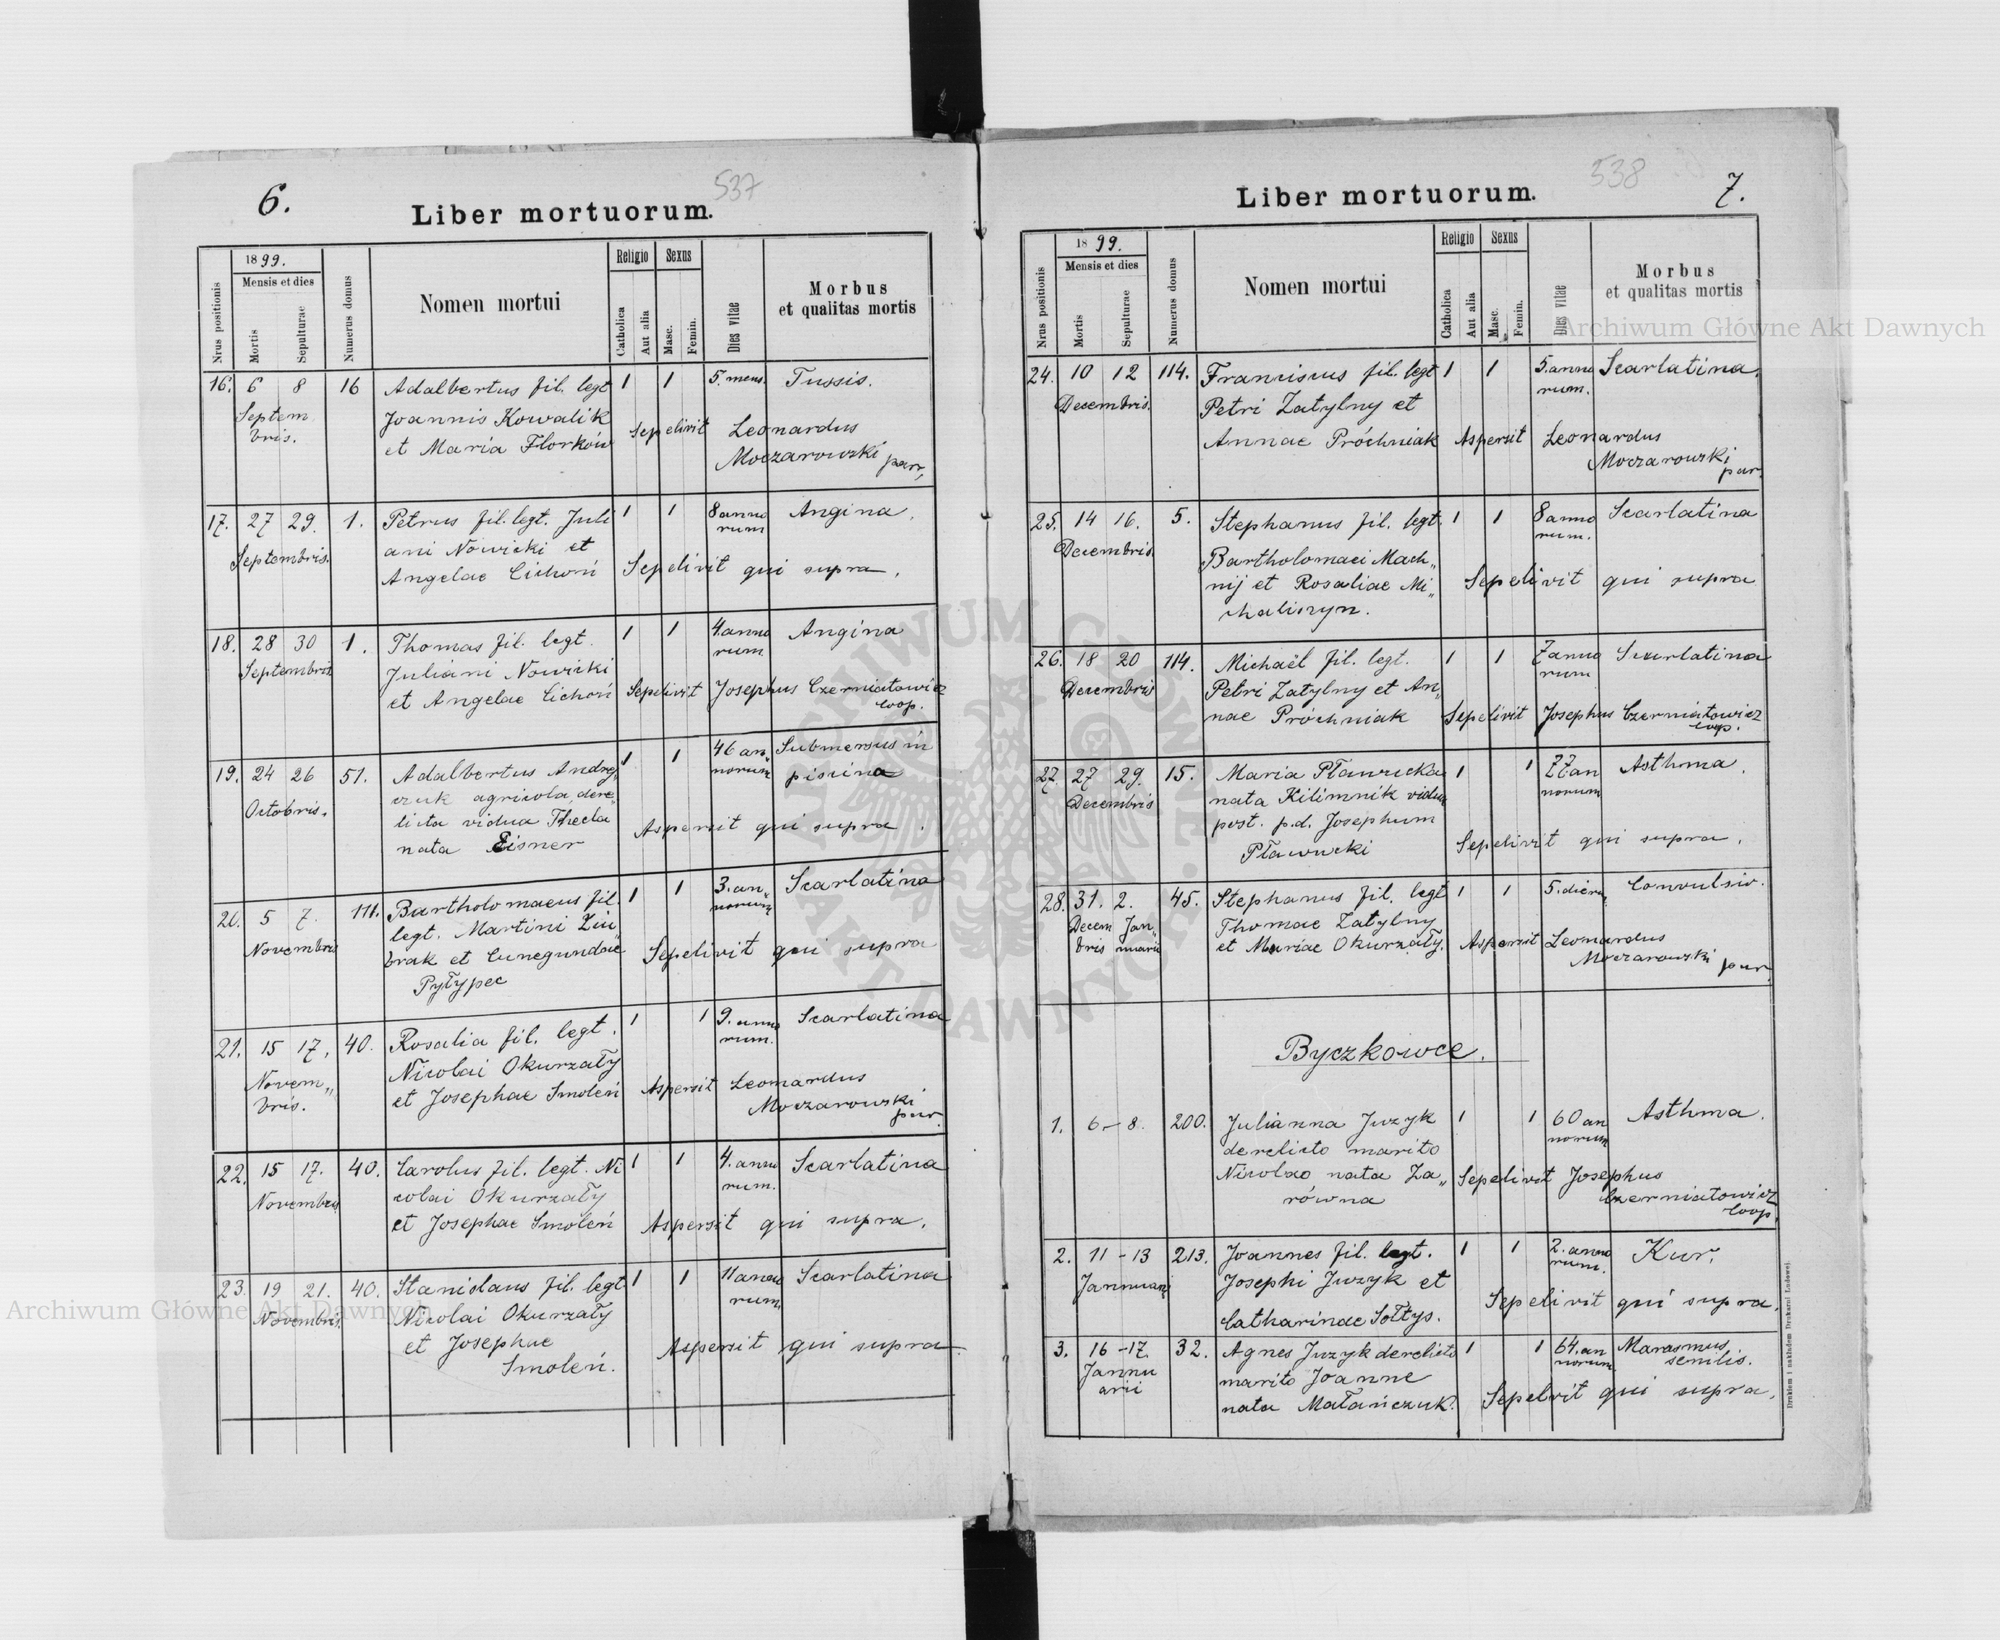 6.
537
Liber mortuorum.
Nrus positionis
1899.
Mensis et dies
Mortis
Sepulturae
Numerus domus
Nomen mortui
Religio
Catholica
Aut alia
Sexus
Masc.
Femin.
Dies vitae
Morbus
et qualitas mortis
16. 6 8 16 Adalbertus fil. legt 1 1 5. mens. Tussis.
Septem Joannis Kowalik Sepelivit Leonardus
bris. et Maria Florków Moczarowski par,
17. 27 29. 1. Petrus fil. legt. Juli 1 1 8 anno Angina.
rum
Septembris. ani Nowicki et
Angelae Cichoń Sepelivit qui supra.
18. 28 30 1. Thomas fil. legt. 1 1 4. anno Angina
Septembris Juliani Nowicki rum
et Angelae Cichoń Sepelivit Josephus Czerniatowicz
coop.
19. 24 26 51. Adalbertus Andrej„ 1 1 46 an„ Submersus in
czuk agricola, dere„ norum piscina
Octobris. licta vidua Thecla Aspersit qui supra.
nata Eisner
20. 5 7. 111. Bartholomaeus fil. 1 1 3. an„ Scarlatina
legt. Martini norum
Novembris brak et Cunegundae Sepelivit qui supra
Pyłypec
21. 15 17. 40. Rosalia fil. legt. 1 1 9. anno Scarlatina
Novem„ Nicolai Okurzały rum.
bris. et Josephae Smoleń Aspersit Leonardus
Moczarowski par.
22. 15 17. 40. Carolus fil. legt. Ni 1 1 4. anno Scarlatina
Novembris colai Okurzały rum.
et Josephae Smoleń Aspersit qui supra.
23. 19 21. 40. Stanislaus fil. legt 1 1 11 anno Scarlatina
Novembris. Nicolai Okurzały rum.
et Josephae Aspersit qui supra
Smoleń.
538
7.
Liber mortuorum.
Nrus positionis
1899.
Mensis et dies
Mortis
Sepulturae
Numerus domus
Nomen mortui
Religio
Catholica
Aut alia
Sexus
Masc.
Femin.
Dies vitae
Morbus
et qualitas mortis
24. 10 12 114. Franciscus fil. legt 1 1 5. anno Scarlatina.
Decembris. Petri Zatylny et rum.
Annae Próchniak Aspersit Leonardus
Moczarowski par.
25. 14 16. 5. Stephanus fil. legt. 1 1 8 anno Scarlatina
Decembris. Bartholomaei Mach„ rum.
nij et Rosaliae Mi„ Sepelivit qui supra
chaliszyn.
26. 18 20 114. Michaël fil. legt. 1 1 7 anno Scarlatina
Decembris Petri Zatylny et An„ rum
nae Próchniak Sepelivit Josephus Czerniatowicz
coop.
27. 27 29. 15. Maria Pławucka 1 1 77 an Asthma.
Decembris nata Kilimnik vidua norum
post. p.d. Josephum Sepelivit qui supra.
Pławucki
28. 31. 2. 45. Stephanus fil. legt 1 1 5. dierum Convulsio.
Decem Jan„ Thomae Zatylny
bris nuarii et Mariae Okurzały. Aspersit Leonardus
Moczarowski par.
Byczkowce.
1. 6 – 8. 200. Julianna Juzyk 1 1 60 an Asthma.
derelicto marito norum
Nicolao nata Za„ Sepelivit Josephus
równa Czerniatowicz
coop.
2. 11 – 13 213. Joannes fil. legt. 1 1 2. anno Kur.
Jannuarii Josephi Juzyk et rum.
Catharinae Sołtys. Sepelivit qui supra.
3. 16 – 17. 32. Agnes Juzyk derelicto 1 1 64. an Marasmus
Jannu marito Joanne norum senilis.
arii nata Małańczuk. Sepelivit qui supra.
Drukiem i nakładem Drukarni Ludowej
Archiwum Główne Akt Dawnych
Archiwum Główne Akt Dawnych
ARCHIWUM GŁÓWNE AKT DAWNYCH